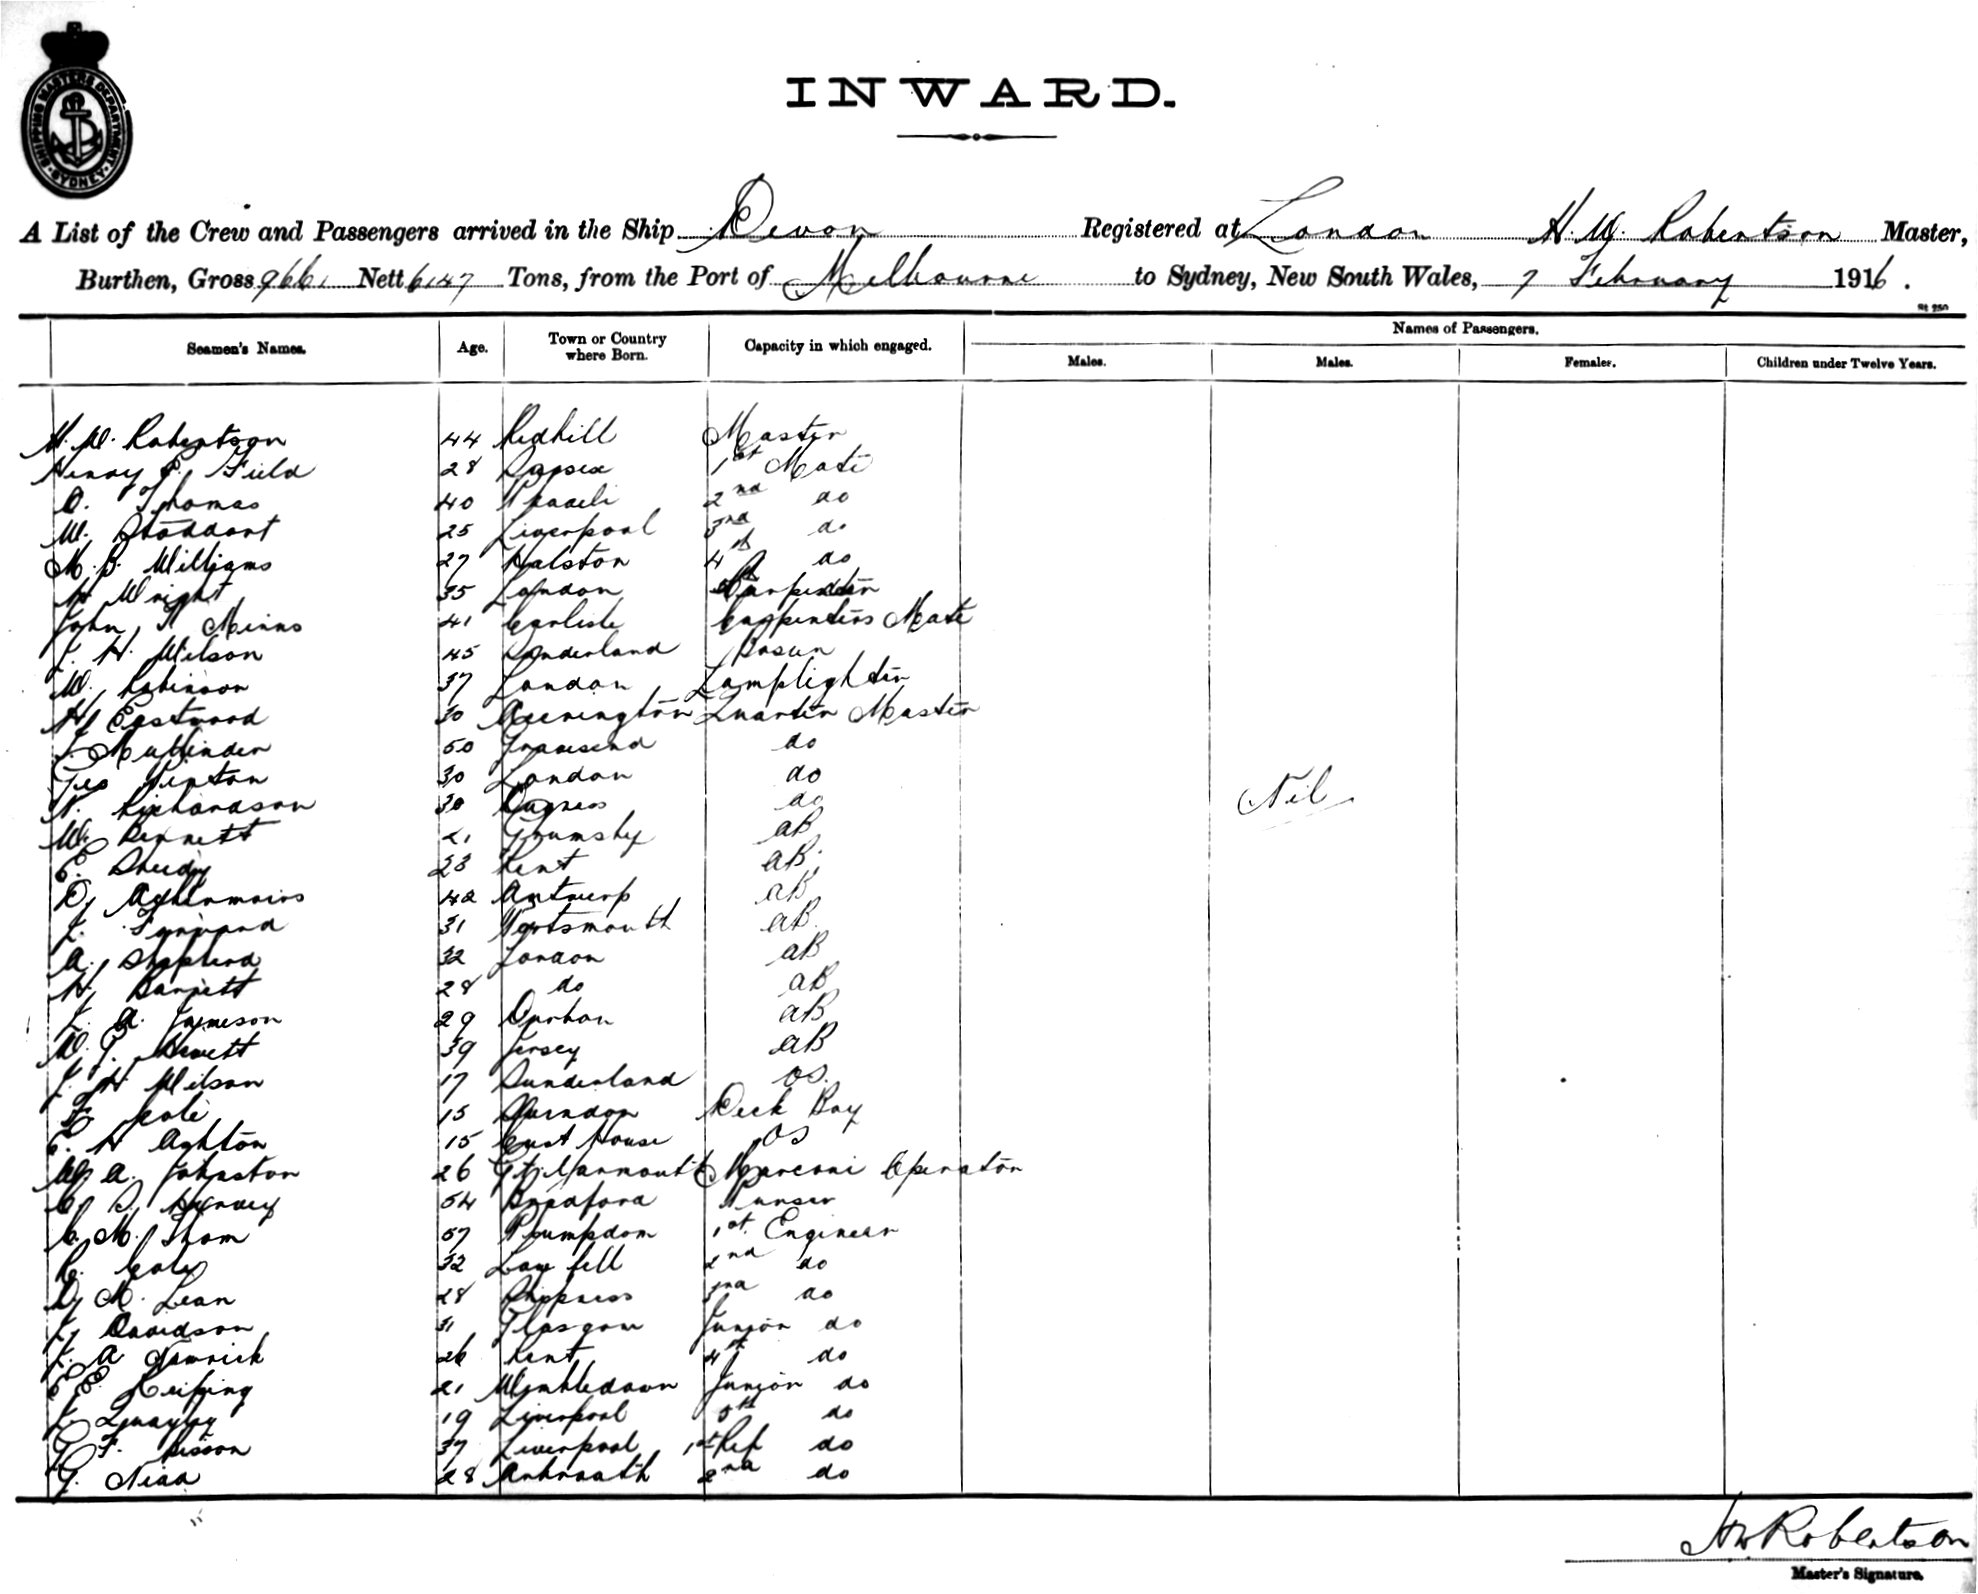 SHIPPING MASTERS DEPARTMENT SYDNEY
INWARD.
A List of the Crew and Passengers arrived in the Ship Devon Registered at London H. W. Robertson Master,
Burthen, Gross 9661 Nett 6147 Tons, from the Port of Melbourne to Sydney, New South Wales, 7 February 1916.
Names of Passengers.
Seamen's Names. Age. Town or Country where Born. Capacity in which engaged. Males. Males. Females. Children under Twelve Years.
H. W. Robertson 44 Redhill Master
Henry E. Field 28 1st Mate
D. Thomas 40 2nd do
W. Stoddart 25 Liverpool 3rd do
M. B. Williams 27 Halston 4th do
H Wright 35 London Carpenter
John Minns 41 Carlisle Carpenters Mate
J. H. Wilson 45 Sunderland Bosun
W. Robinson 37 London Lamplighter
H Eastwood 30 Accrington Quarter Master
J. Mullinder 50 Gravesend do
Geo Kenton 30 London do
N. Richardson 30 do
W. Bennett 21 Grumsby AB
E. Sheedy 23 Kent AB
D. 42 Antwerp AB
J. 31 Portsmouth AB
A. Shepherd 32 London AB
H. Barnett 28 do AB
J. A. Jameson 29 Durban AB
W. G. Hewett 39 Jersey AB
J. H Wilson 17 Sunderland OS.
F. Cole 15 Deck Boy
E. H Aghton 15 East House OS
W. A. Johnston 26 Gt. Yarmouth Marconi Operator
C. S. Harvey 54 Bradford Purser
C. M. Thom 57 1st Engineer
R. Coley 32 2nd do
D M. Lean 28 3rd do
J. Davidson 31 Glasgow Junior do
J. A 26 Kent 4th do
E E. 21 Wimbledown Junior do
J. Quayley 19 Liverpool 5th do
G F. Sisson 37 Liverpool 1st Ref do
G. Nidd 28 Arbroath 2nd do
Nil
HW Robertson
Master's Signature.